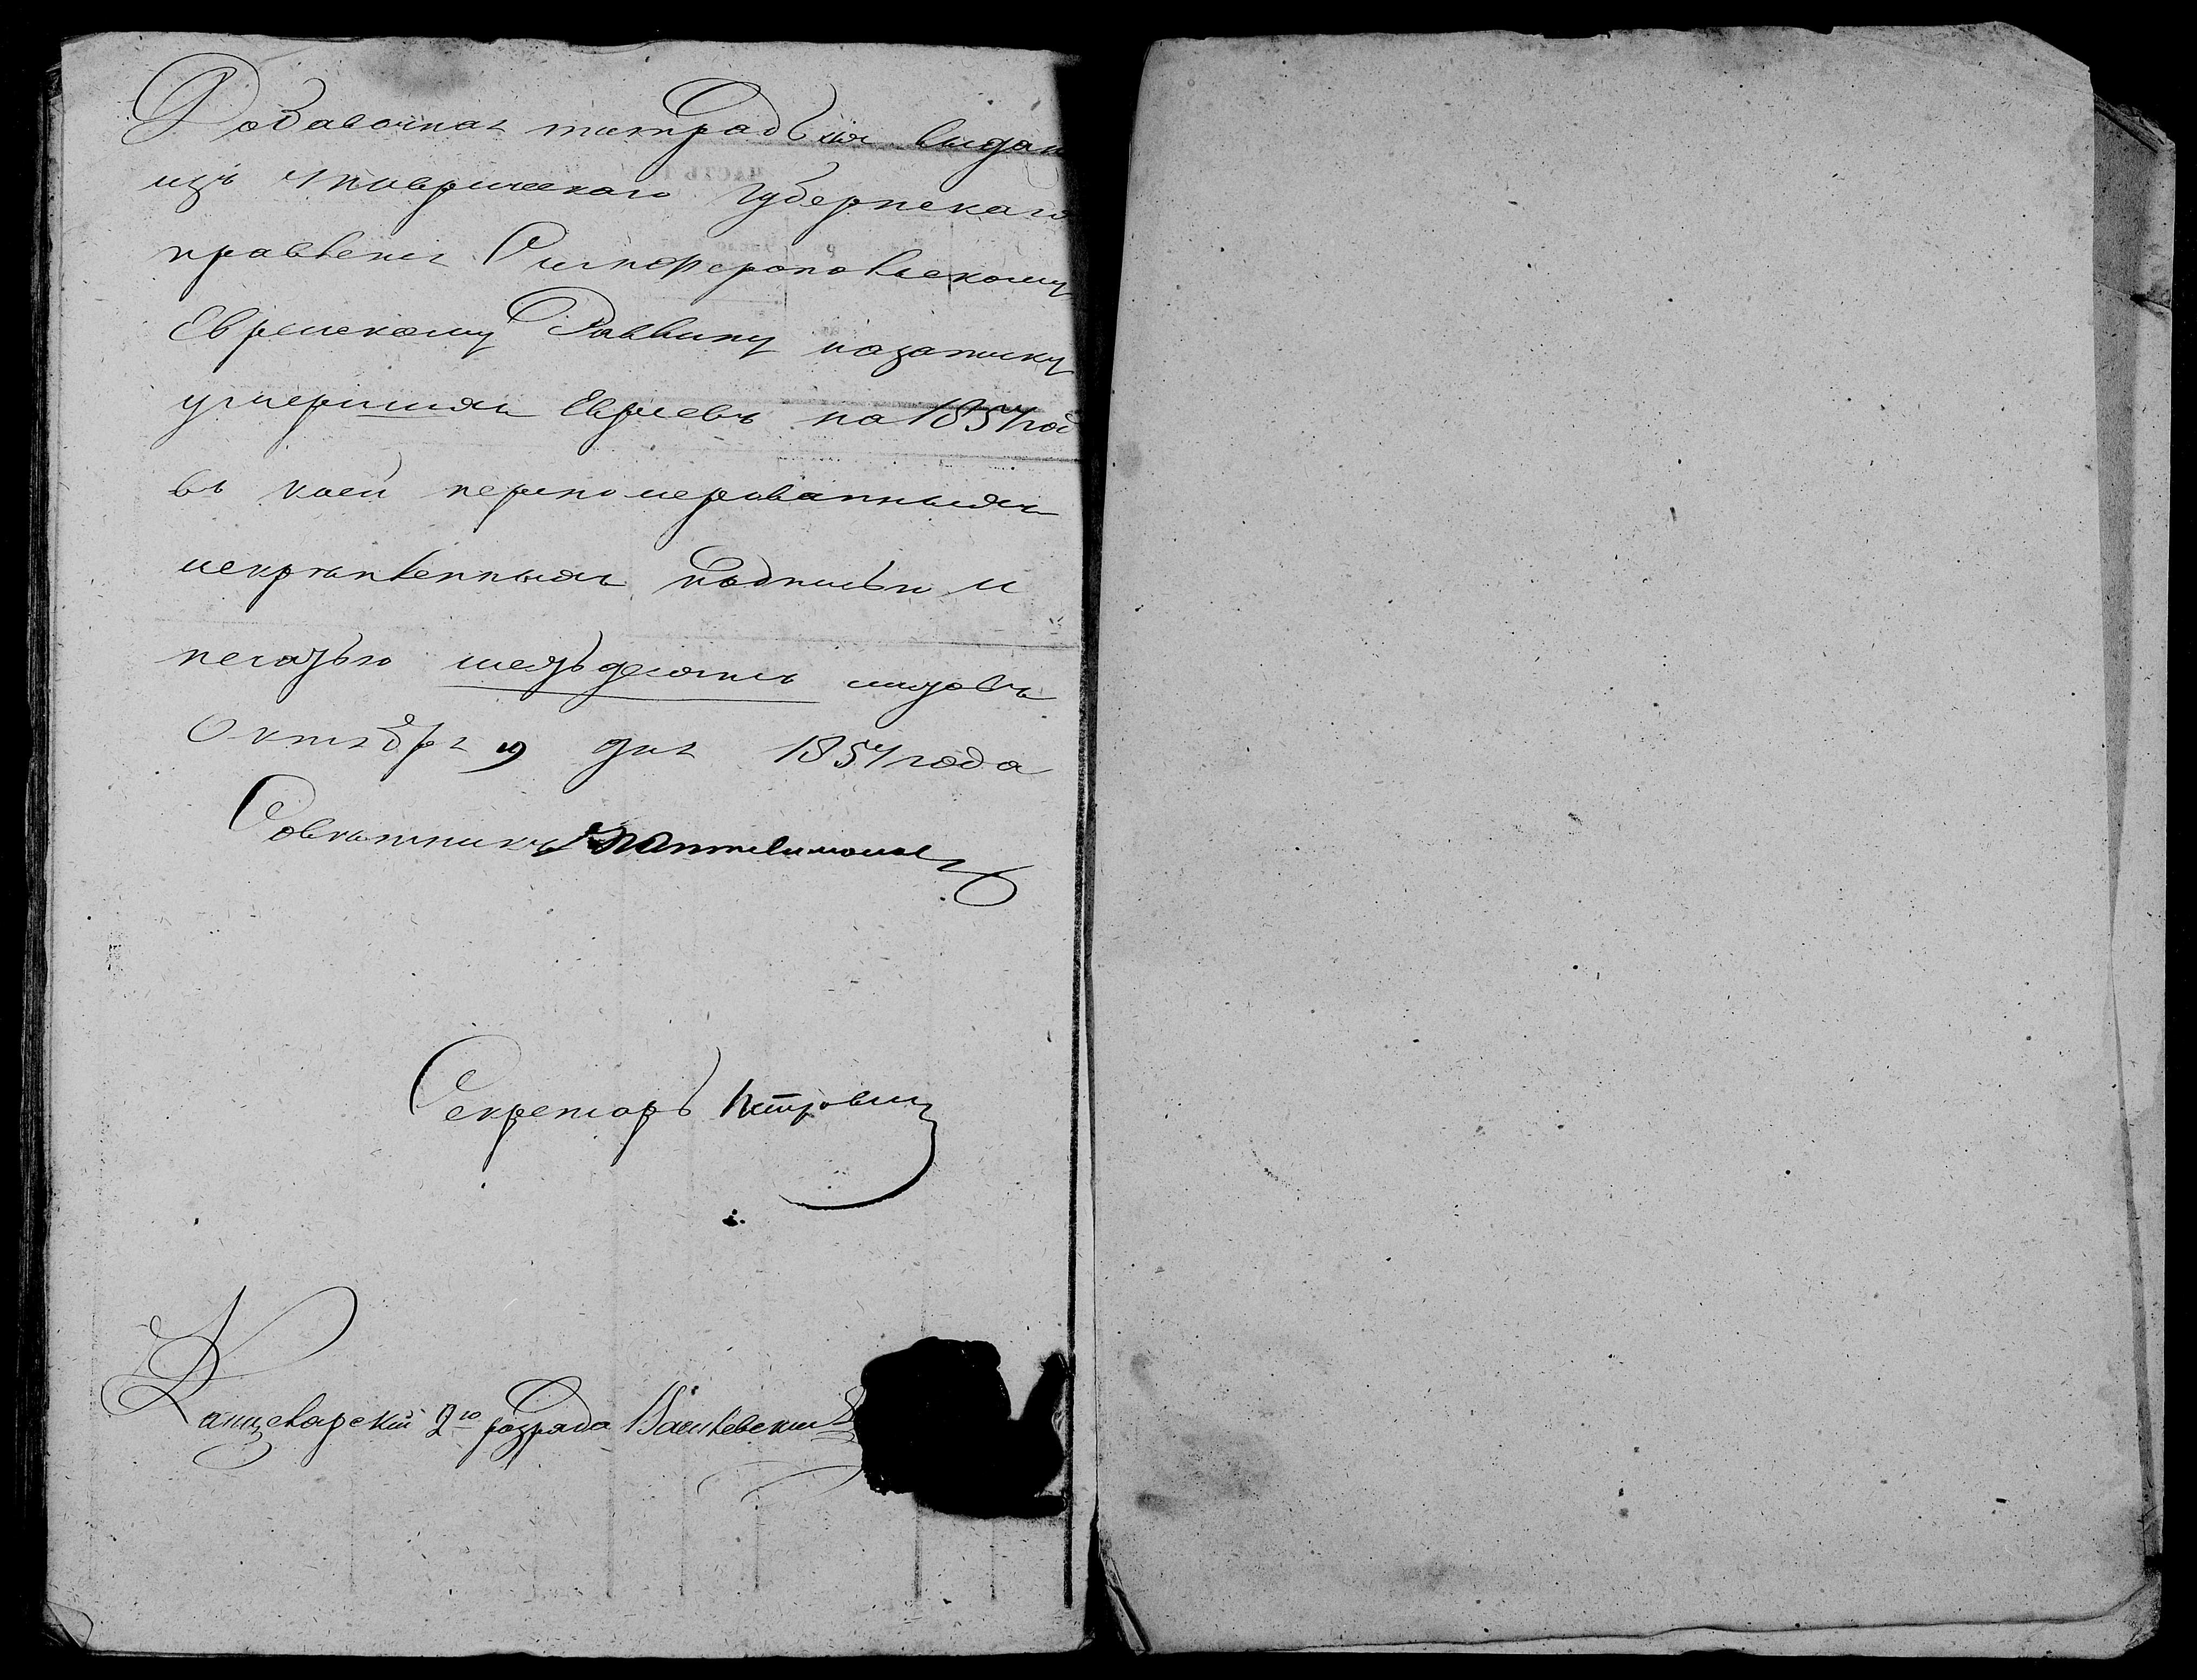 Добавочная тетрадь сия выдан
изъ Таврическаго Губернскаго
правленія Симферопольскому
Еврейскому Раввину на записку
умершимъ Евреевъ на 1854 год
въ коей перномерованнымъ
искрѣпленнымъ подписью и
печатью шездѣсятъ листовъ
Октября 19 дня 1854 года
Совѣтникъ
Секретарь Петрович
Канцеларскій 2го разряда Василевскій